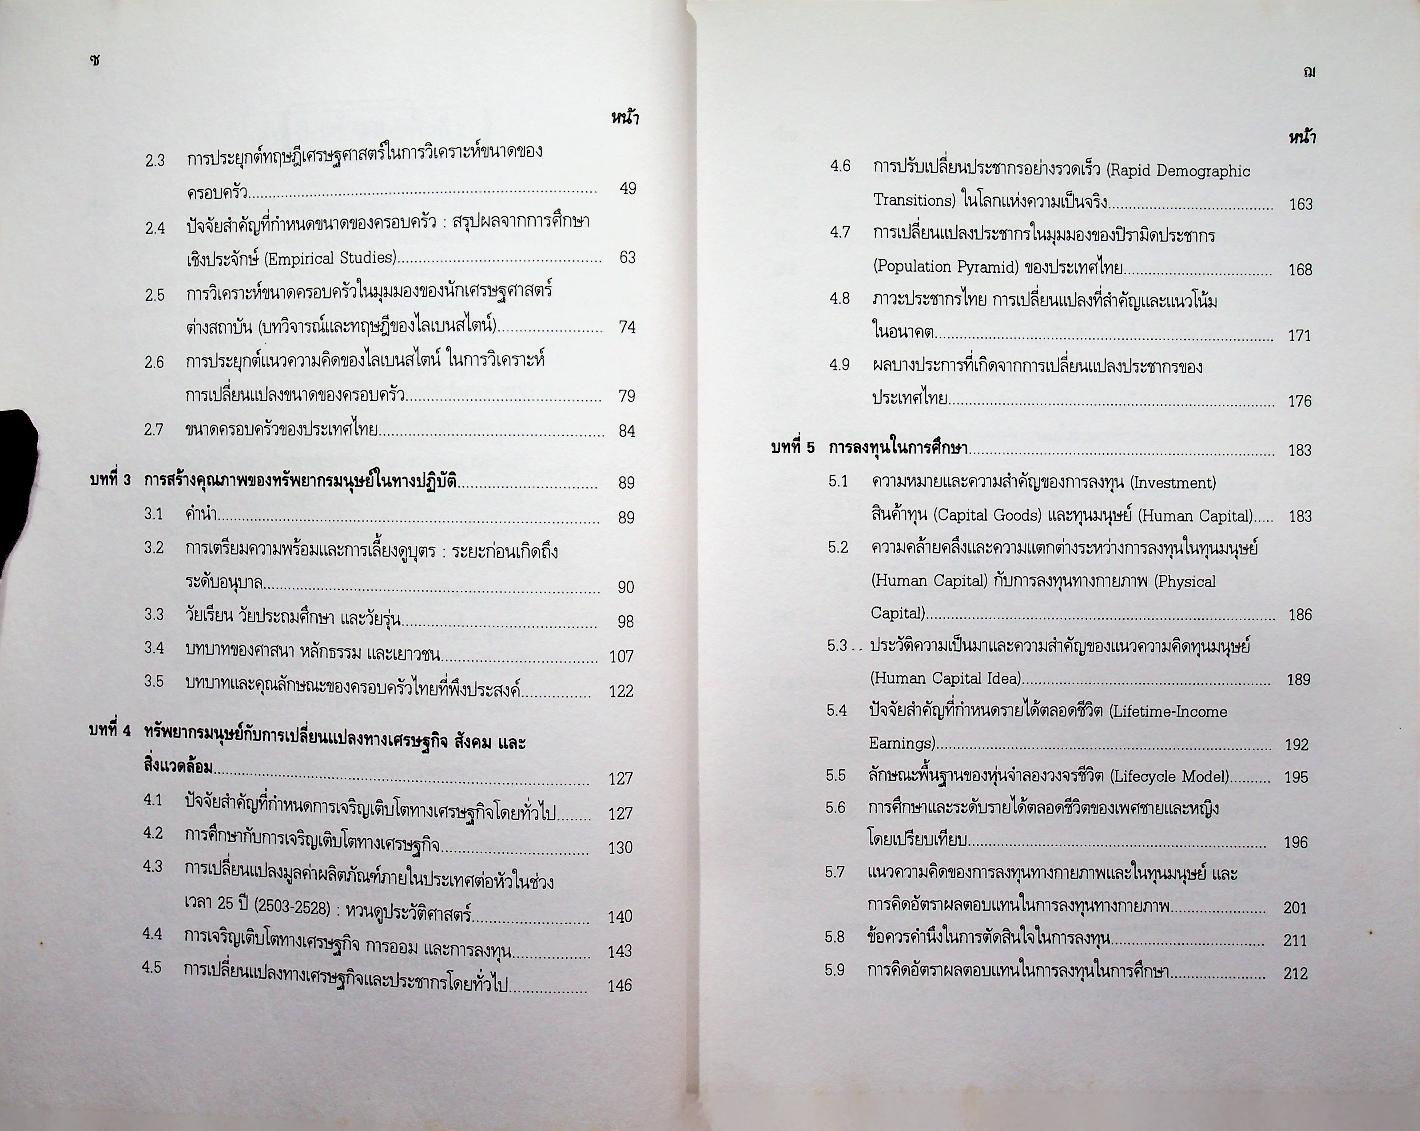 ซ
หน้า
2.3 การประยุกต์ทฤษฎีเศรษฐศาสตร์ในการวิเคราะห์ขนาดของ
ครอบครัว........................................................ 49
2.4 ปัจจัยสำคัญที่กำหนดขนาดของครอบครัว : สรุปผลจากการศึกษา
เชิงประจักษ์ (Empirical Studies)........................................ 63
2.5 การวิเคราะห์ขนาดครอบครัวในมุมมองของนักเศรษฐศาสตร์
ต่างสถาบัน (บทวิจารณ์และทฤษฎีของไลเบนสไตน์)..................... 74
2.6 การประยุกต์แนวความคิดของไลเบนสไตน์ ในการวิเคราะห์
การเปลี่ยนแปลงขนาดของครอบครัว...................................... 79
2.7 ขนาดครอบครัวของประเทศไทย........................................... 84
บทที่ 3 การสร้างคุณภาพของทรัพยากรมนุษย์ในทางปฏิบัติ........................... 89
3.1 คำนำ........................................................ 89
3.2 การเตรียมความพร้อมและการเลี้ยงดูบุตร : ระยะก่อนเกิดถึง
ระดับอนุบาล........................................................ 90
3.3 วัยเรียน วัยประถมศึกษา และวัยรุ่น....................................... 98
3.4 บทบาทของศาสนา หลักธรรม และเยาวชน............................... 107
3.5 บทบาทและคุณลักษณะของครอบครัวไทยที่พึงประสงค์.............. 122
บทที่ 4 ทรัพยากรมนุษย์กับการเปลี่ยนแปลงทางเศรษฐกิจ สังคม และ
สิ่งแวดล้อม........................................................ 127
4.1 ปัจจัยสำคัญที่กำหนดการเจริญเติบโตทางเศรษฐกิจโดยทั่วไป........ 127
4.2 การศึกษากับการเจริญเติบโตทางเศรษฐกิจ............................. 130
4.3 การเปลี่ยนแปลงมูลค่าผลิตภัณฑ์ภายในประเทศต่อหัวในช่วง
เวลา 25 ปี (2503-2528) : หวนดูประวัติศาสตร์........................ 140
4.4 การเจริญเติบโตทางเศรษฐกิจ การออม และการลงทุน................ 143
4.5 การเปลี่ยนแปลงทางเศรษฐกิจและประชากรโดยทั่วไป................ 146
ฌ
หน้า
4.6 การปรับเปลี่ยนประชากรอย่างรวดเร็ว (Rapid Demographic
Transitions) ในโลกแห่งความเป็นจริง................................. 163
4.7 การเปลี่ยนแปลงประชากรในมุมมองของปิรามิดประชากร
(Population Pyramid) ของประเทศไทย.............................. 168
4.8 ภาวะประชากรไทย การเปลี่ยนแปลงที่สำคัญและแนวโน้ม
ในอนาคต........................................................ 171
4.9 ผลบางประการที่เกิดจากการเปลี่ยนแปลงประชากรของ
ประเทศไทย........................................................ 176
บทที่ 5 การลงทุนในการศึกษา........................................................ 183
5.1 ความหมายและความสำคัญของการลงทุน (Investment)
สินค้าทุน (Capital Goods) และทุนมนุษย์ (Human Capital)..... 183
5.2 ความคล้ายคลึงและความแตกต่างระหว่างการลงทุนในทุนมนุษย์
(Human Capital) กับการลงทุนทางกายภาพ (Physical
Capital)........................................................ 186
5.3 .. ประวัติความเป็นมาและความสำคัญของแนวความคิดทุนมนุษย์
(Human Capital Idea)................................................ 189
5.4 ปัจจัยสำคัญที่กำหนดรายได้ตลอดชีวิต (Lifetime-Income
Earnings)........................................................ 192
5.5 ลักษณะพื้นฐานของหุ่นจำลองวงจรชีวิต (Lifecycle Model).......... 195
5.6 การศึกษาและระดับรายได้ตลอดชีวิตของเพศชายและหญิง
โดยเปรียบเทียบ........................................................ 196
5.7 แนวความคิดของการลงทุนทางกายภาพและในทุนมนุษย์ และ
การคิดอัตราผลตอบแทนในการลงทุนทางกายภาพ................... 201
5.8 ข้อควรคำนึงในการตัดสินใจในการลงทุน............................... 211
5.9 การคิดอัตราผลตอบแทนในการลงทุนในการศึกษา................... 212